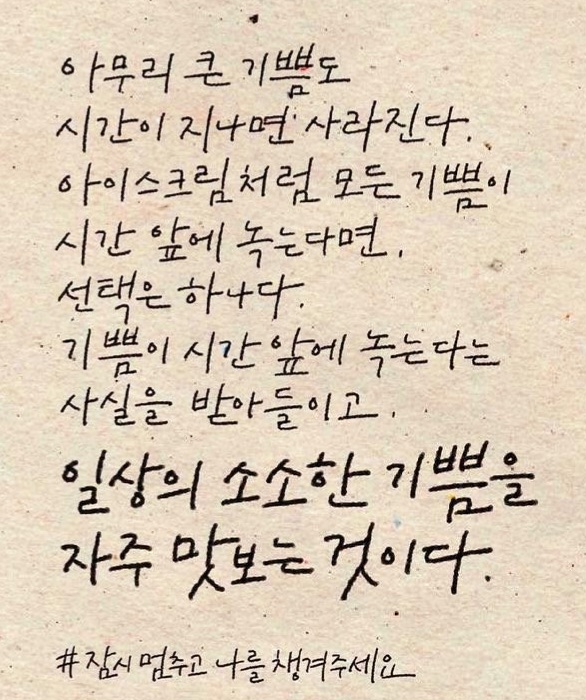 아무리 큰 기쁨도
시간이 지나면 사라진다.
아이스크림처럼 모든 기쁨이
시간 앞에 녹는다면,
선택은 하나다.
기쁨이 시간 앞에 녹는다는
사실을 받아들이고,
일상의 소소한 기쁨을
자주 맛보는 것이다.
#잠시멈추고 나를챙겨주세요